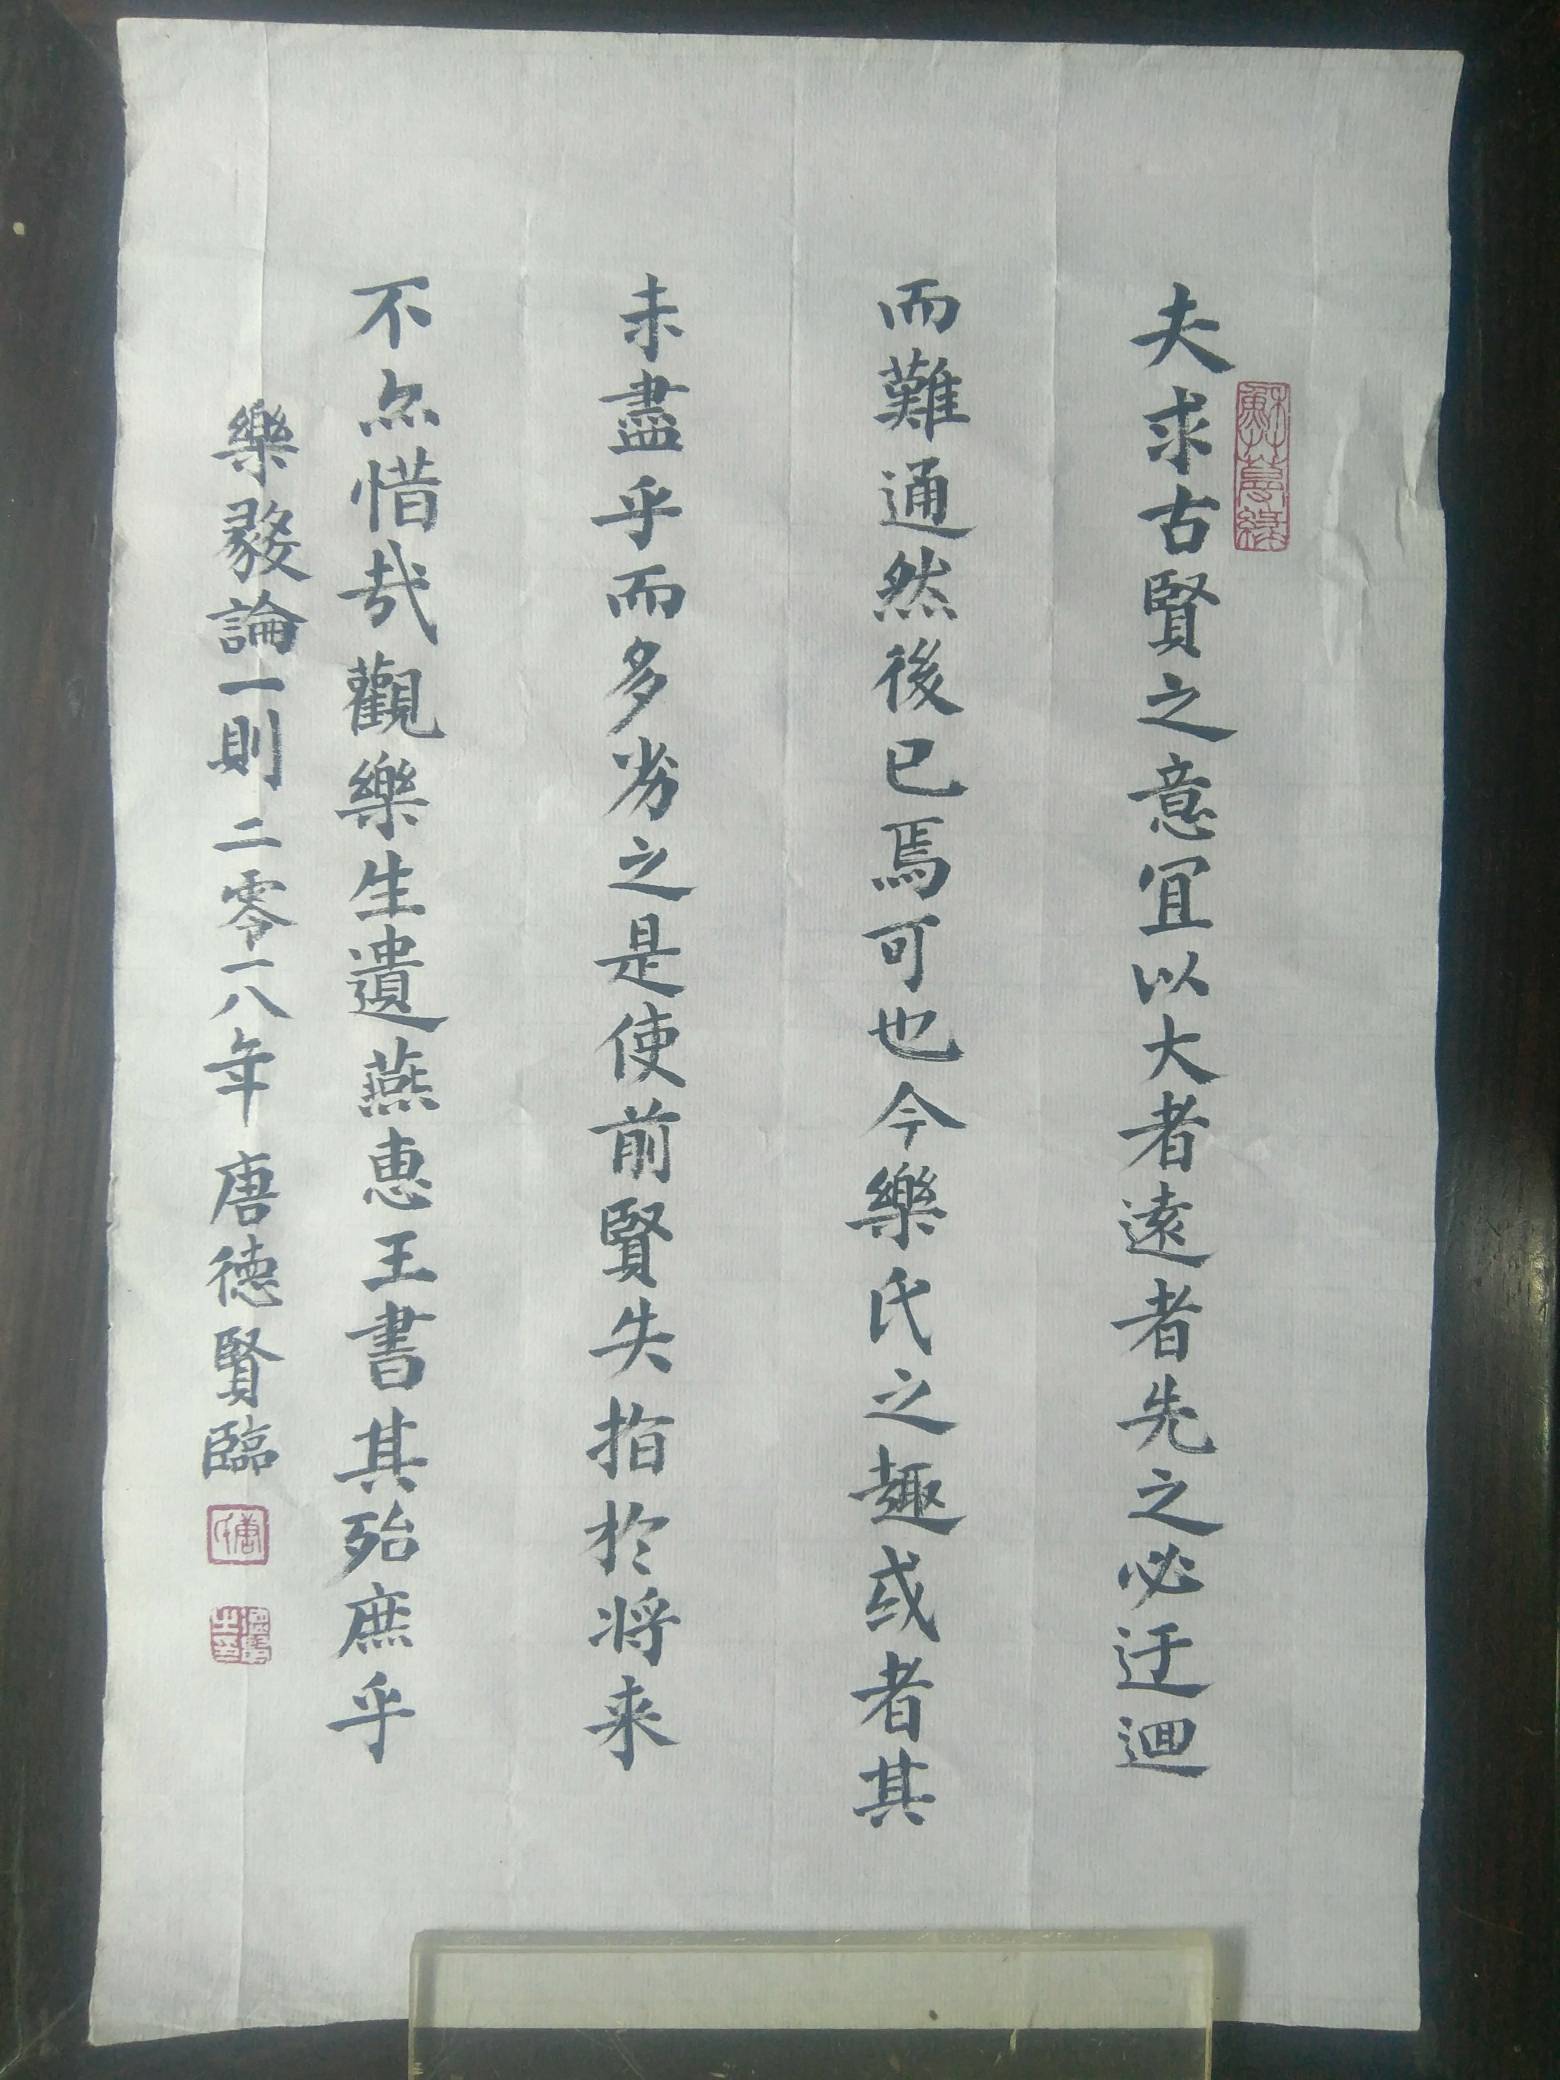 夫求古賢之意宜以大者遠者先之必迂迴
而難通然後已焉可也今樂氏之趣或者其
未盡乎而多劣之是使前賢失指於将来
不亦惜哉觀樂生遺燕惠王書其殆庶乎
樂毅論一則 二零一八年 唐德賢臨